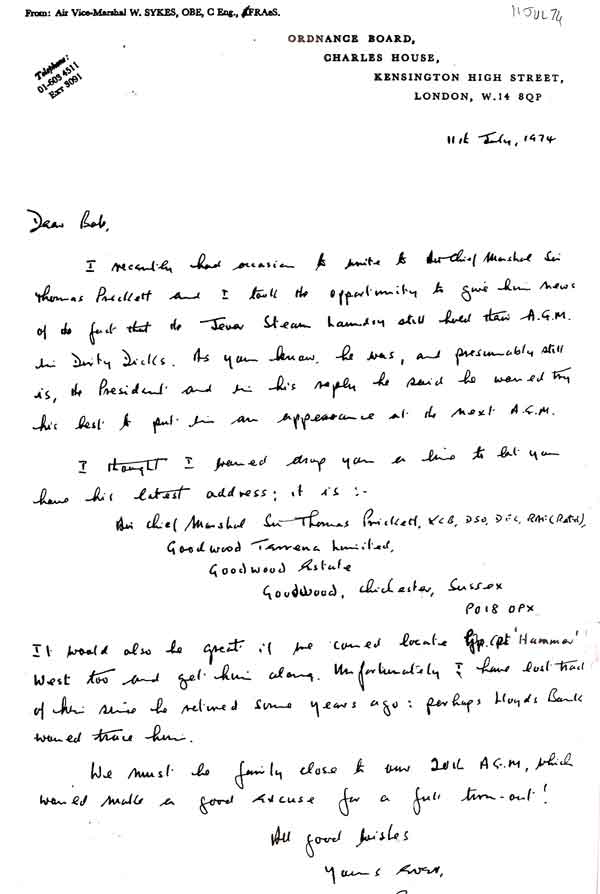 From: Air Vice-Marshal W. SYKES, OBE, C Eng., AFRAeS.
11 JUL 74
Telephone:
01-603 4511
EXT 3091
ORDNANCE BOARD,
CHARLES HOUSE,
KENSINGTON HIGH STREET,
LONDON, W.14 8QP
11th July, 1974
Dear Bob,
I recently had occasion to write to Air Chief Marshal Sir
Thomas Prickett and I took the opportunity to give him news
of the fact that the Jever Steam Laundry still hold their A.G.M.
in Dirty Dicks. As you know, he was, and presumably still
is, the President and in his reply he said he would try
his best to put in an appearance at the next A.G.M.
I thought I would drop you a line to let you
have his latest address; it is :-
Air Chief Marshal Sir Thomas Prickett, KCB, DSO, DFC, RAF (Retd),
Goodwood Terrena Limited,
Goodwood Estate
Goodwood, Chichester, Sussex
PO18 0PX
It would also be great if we could locate Gp. Cpt 'Hammer'
West too and get him along. Unfortunately I have lost track
of him since he retired some years ago: perhaps Lloyds Bank
would trace him.
We must be fairly close to our 20th A.G.M, which
would make a good excuse for a full turn-out!
All good wishes
Yours ever,